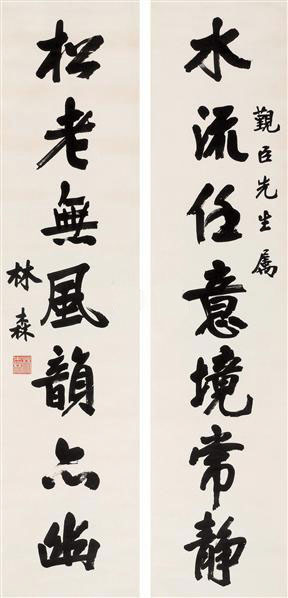 水流任意境常静
觐臣先生属
松老無風韻亦幽
林森